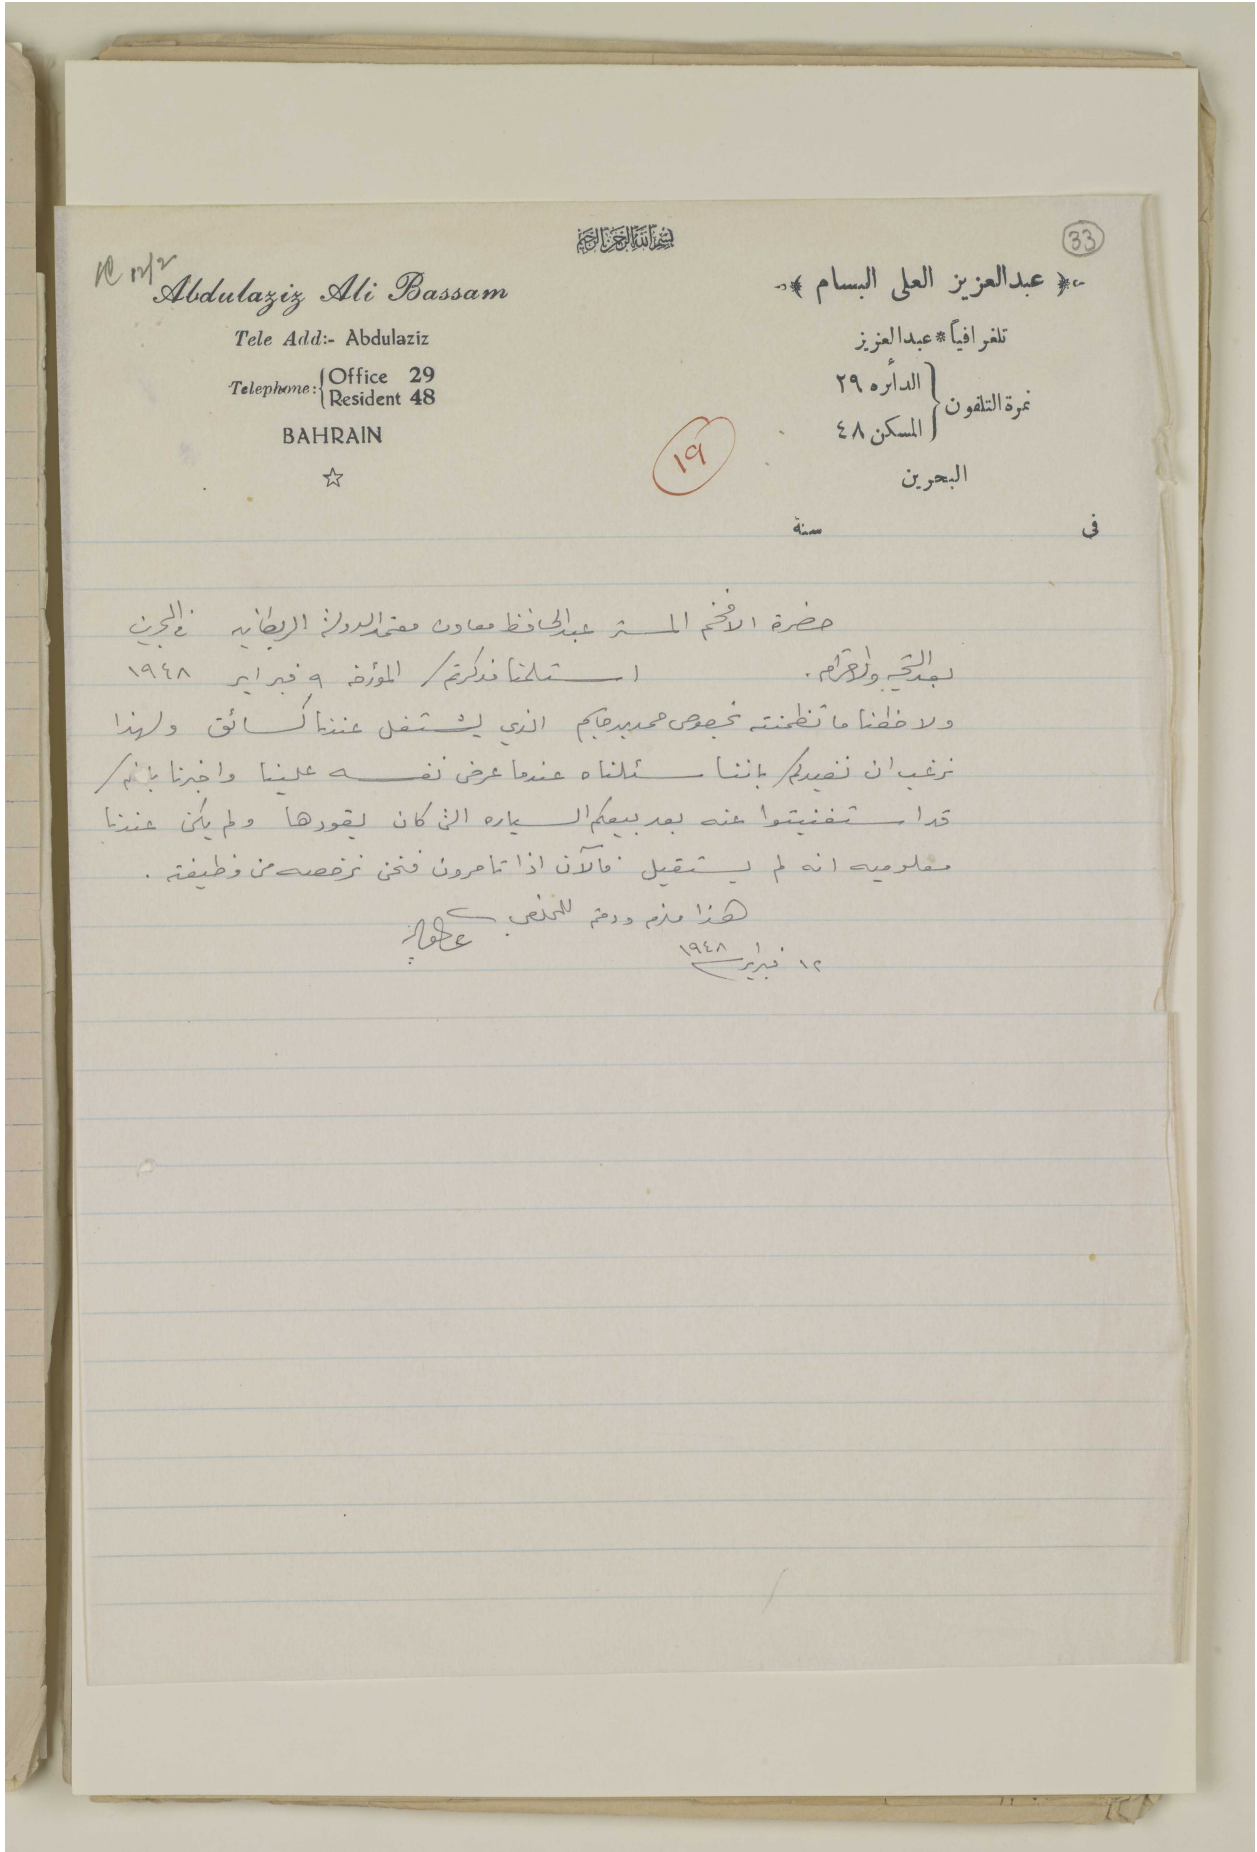 بسم الله الرحمن الرحيم
33
12/2
Abdulaziz Ali Bassam
عبدالعزيز العلى البسام
Tele Add:- Abdulaziz
تلغرافياً * عبدالعزيز
Telephone: Office 29
Resident 48
نمرة التلفون الدائره ٢٩
المسكن ٤٨
BAHRAIN
البحرين
١٩
فى سنة
حضرة الافخم المستر عبدالحافظ معاون معتمد الدولة البريطانيه في البحرين
بعد التحيه والاحترام. استلمنا مذكرتكم المؤرخه ٩ فبراير ١٩٤٨
ولاحظنا ما تظمنته بخصوص محمد الذي يشتغل عندنا كسائق ولهذا
نرغب ان نفيدكم باننا سئلناه عندما عرض نفسه علينا واخبرنا بانكم
قد استغنيتوا عنه بعد بيعكم السياره التى كان يقودها ولم يكن عندنا
معلوميه انه لم يستقيل فالآن اذا تامرون فنحن نرخصه من وظيفته .
هذا مالزم ودمتم للمخلص
١٢ فبراير ١٩٤٨